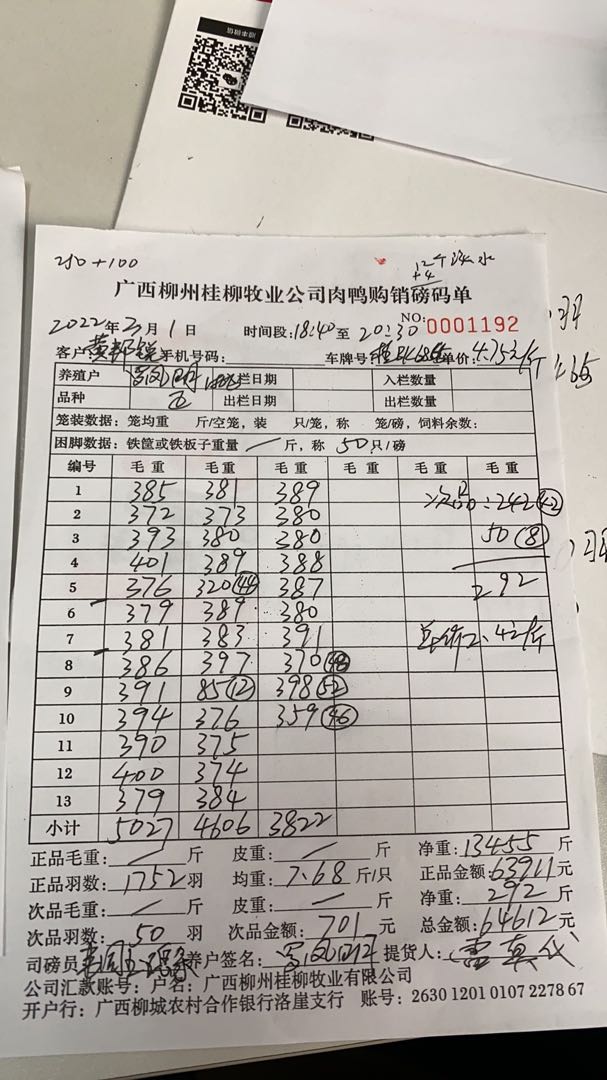 250+100
12个净水
+4
广西柳州桂柳牧业公司肉鸭购销磅码单
NO:0001192
2022年3月1日 时间段:18:40至20:30
客户: 手机号码: 车牌号: 单价:4.75元/斤
养殖户 入栏日期 入栏数量
品种 五 出栏日期 出栏数量
笼装数据: 笼均重 斤/空笼, 装 只/笼, 称 笼/磅, 饲料余数:
困脚数据: 铁筐或铁板子重量 / 斤, 称 50 只/磅
编号 毛重 毛重 毛重 毛重 毛重 毛重
1 385 381 389 次品:242(42)
2 372 373 380
3 393 380 380 50(8)
4 401 389 388
5 376 320(44) 387 292
6 379 389 380
7 381 383 391 单价2.4元/斤
8 386 397 370(48)
9 391 85(12) 398(52)
10 394 376 359(46)
11 390 375
12 400 374
13 379 384
小计 5027 4606 3822
正品毛重: / 斤 皮重: / 斤 净重:13455斤
正品羽数:1752羽 均重:7.68斤/只 正品金额:63911元
次品毛重: / 斤 皮重: / 斤 净重:292斤
次品羽数:50羽 次品金额:701元 总金额:64612元
司磅员: 养户签名: 提货人:
公司汇款账号: 户名: 广西柳州桂柳牧业有限公司
开户行: 广西柳城农村合作银行洛崖支行 账号: 2630 1201 0107 2278 67